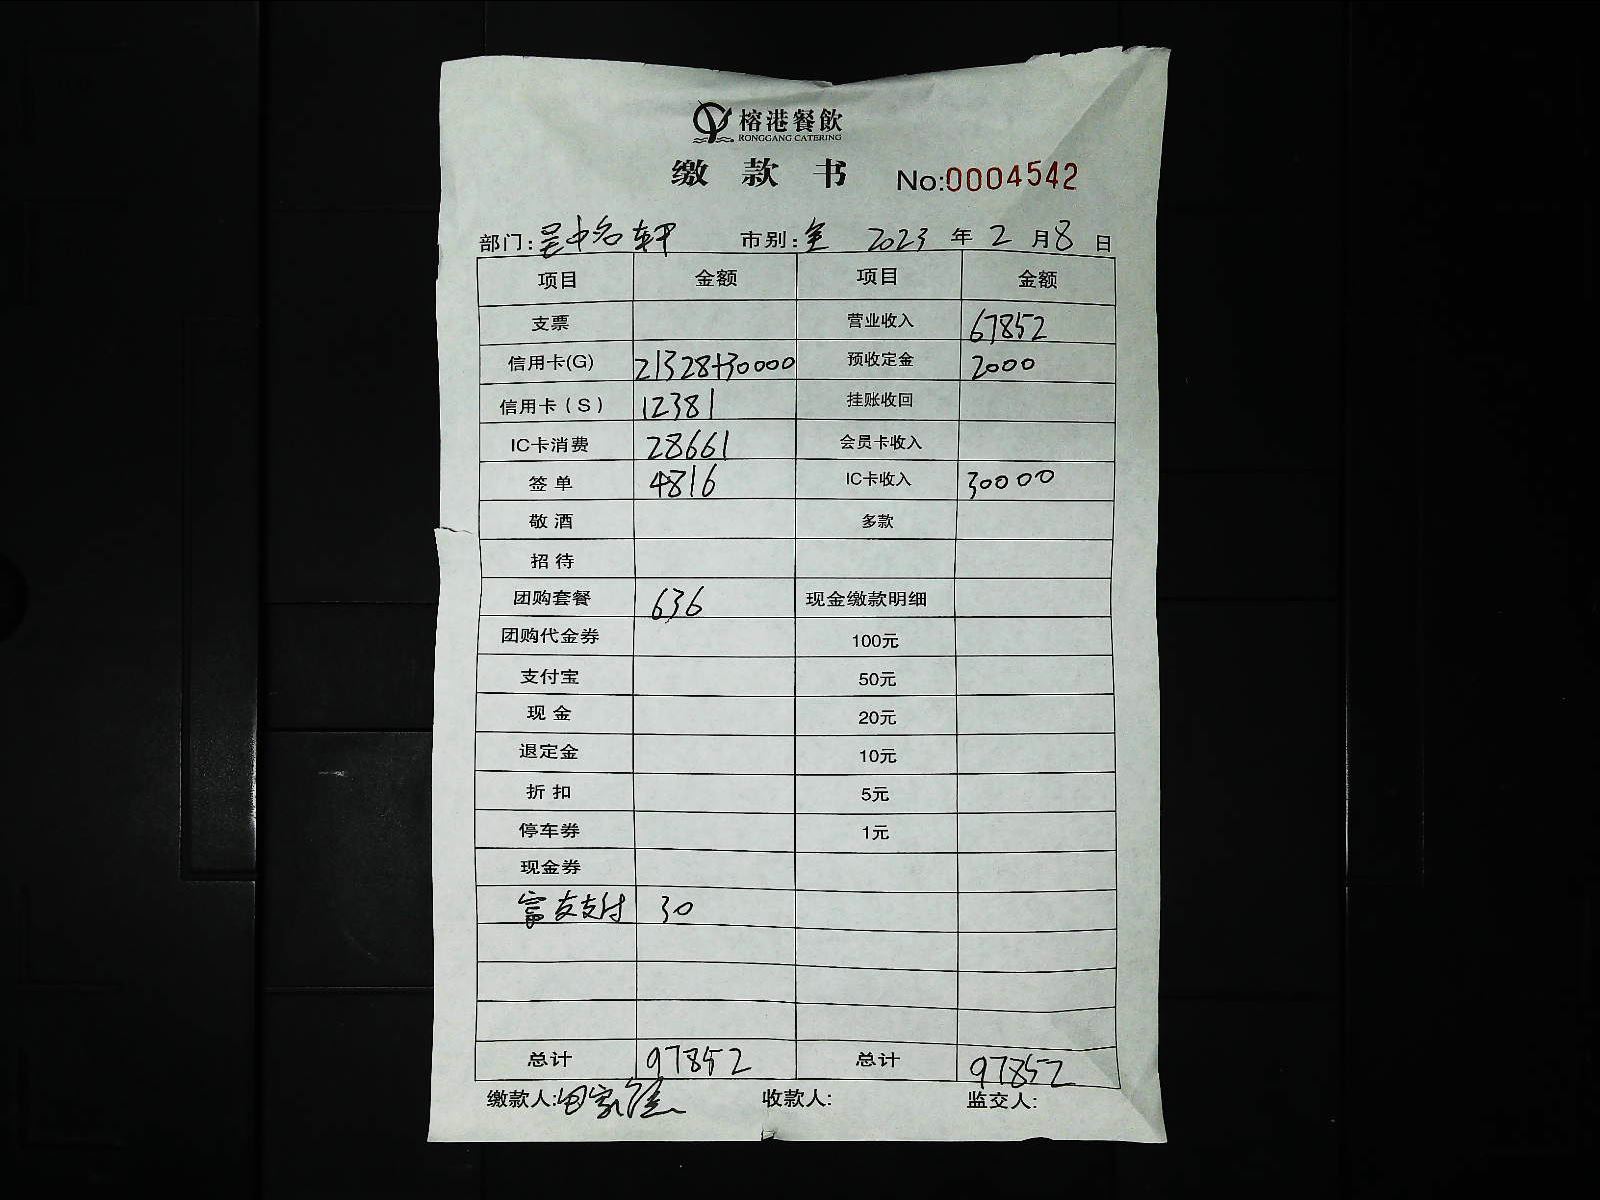 榕港餐飲
RONGGANG CATERING
缴款书 No:0004542
部门:吴中名轩 市别:全 2023年2月8日
项目 金额 项目 金额
支票 营业收入 67852
信用卡(G) 21328+30000 预收定金 2000
信用卡(S) 12381 挂账收回
IC卡消费 28661 会员卡收入
签单 4816 IC卡收入 30000
敬酒 多款
招待
团购套餐 636 现金缴款明细
团购代金券 100元
支付宝 50元
现金 20元
退定金 10元
折扣 5元
停车券 1元
现金券
富友支付 30
总计 97852 总计 97852
缴款人: 收款人: 监交人: